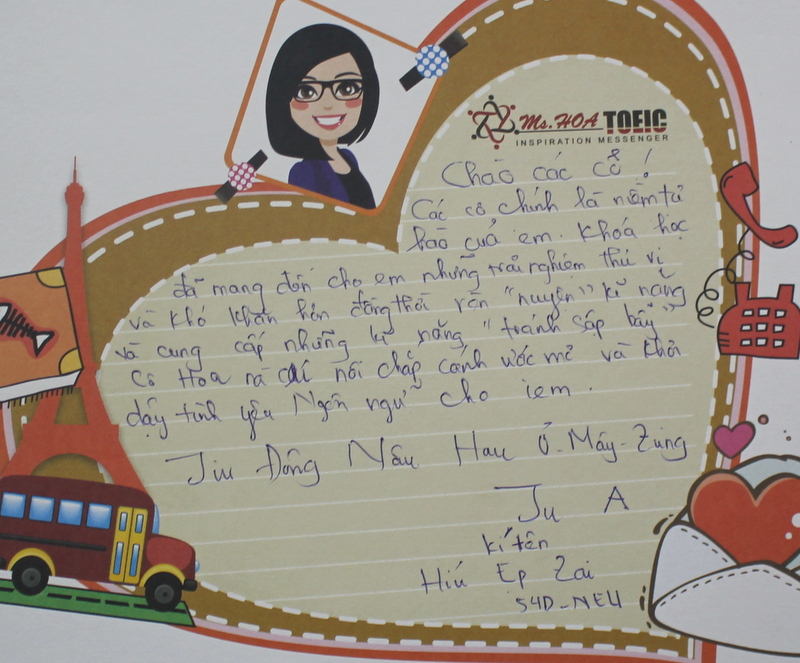 Ms. HOA TOEIC
INSPIRATION MESSENGER
Chào các cô!
Các cô chính là niềm tự
hào của em. Khoá học
đã mang đến cho em những trải nghiệm thú vị
và khó khăn hơn đồng thời rèn "nuyện" kĩ năng
và cung cấp những kĩ năng "tránh sập bẫy"
Cô Hoa nà nơi chắp cánh ước mơ và khơi
dậy tình yêu Ngôn ngữ cho iem.
Jiu Đông Nâu Hau Ú-Mây-Zing
Ju A
kí tên
Hiú Ẹp Zai
54D-NEU